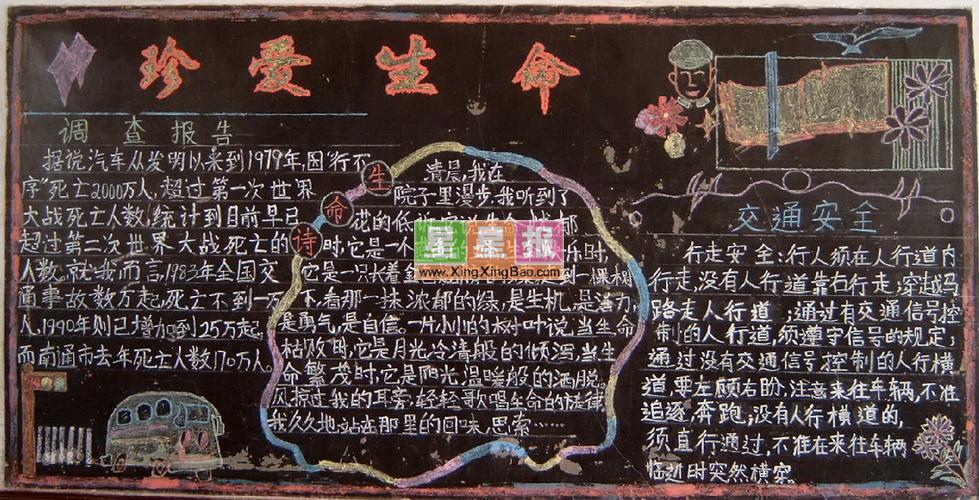 珍爱生命
调查报告
据说汽车从发明以来到1979年,因"行不
字"死亡2000万人,超过第一次世界
大战死亡人数,统计到目前早已
超过第二次世界大战死亡的
人数,就我而言,1983年全国交
通事故数万起,死亡不到一万
人,1990年则已增加到25万起,
而南通市去年死亡人数170万人
生命诗
清晨,我在
院子里漫步,我听到了
花的低
时,它是一个
乐时,
它是一只长着
到一棵树
下,看那一抹浓郁的绿,是生机,是活力,
是勇气,是自信。一片小小的树叶说,当生命
枯败时,它是月光冷清般的倾泻,当生
命繁茂时,它是阳光温暖般的洒脱。
风掠过我的耳旁,轻轻歌唱生命的旋律
我久久地站在那里的回味,思索……
星星报
www.XingXingBao.com
交通安全
行走安全:行人须在人行道内
行走,没有人行道靠右行走,穿越马
路走人行道;通过有交通信号控
制的人行道,须遵守信号的规定;
通过没有交通信号控制的人行横
道,要左顾右盼,注意来往车辆,不准
追逐、奔跑,没有人行横道的,
须直行通过,不准在来往车辆
临近时突然横穿。